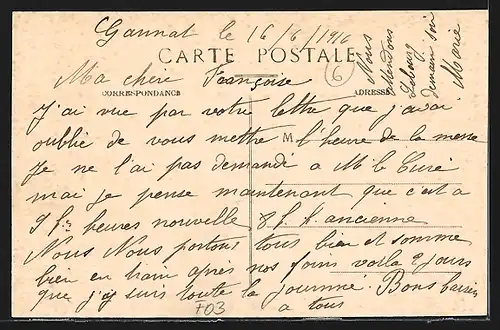 Gannat le 16/6/1916
CARTE POSTALE
6
Ma chère Françoise
CORRESPONDANCE
ADRESSE
J'ai vue par votre lettre que j'avai
oublié de vous mettre l'heure de la messe
M
Je ne l'ai pas demandé a M. le Curé
mai je pense maintenant que c'est a
9 h heures nouvelle 8 h ancienne
Nous Nous portons tous bien et somme
bien en train après nos foins voila 2 jours
que j'y suis toute la journné. Bons baisers
a tous
703
Nous
attendons
demain soir
Marie